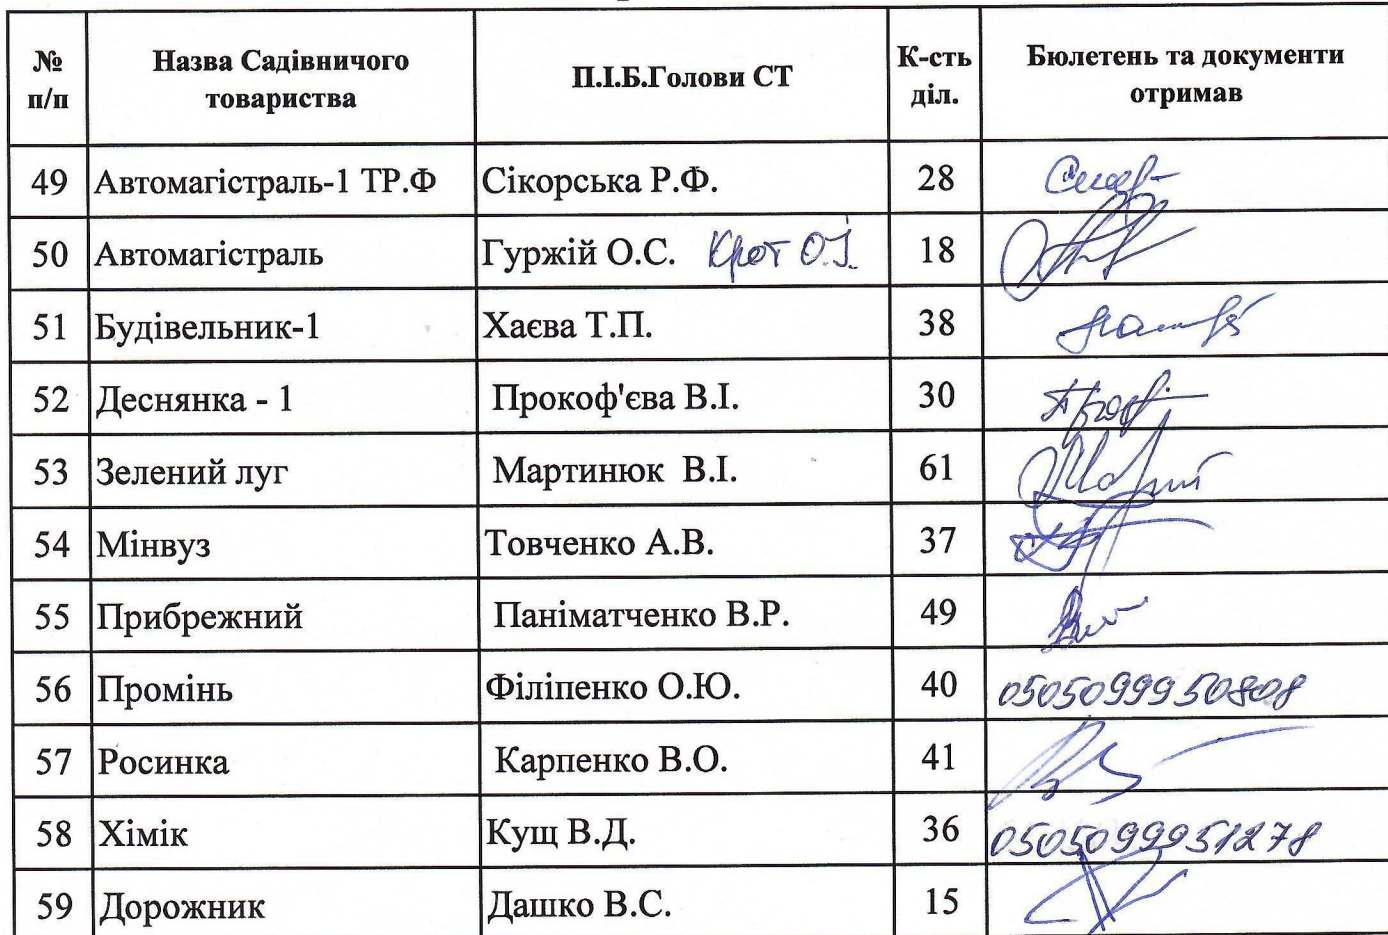 № п/п Назва Садівничого товариства П.І.Б.Голови СТ К-сть діл. Бюлетень та документи отримав
49 Автомагістраль-1 ТР.Ф Сікорська Р.Ф. 28
50 Автомагістраль Гуржій О.С. Крот О.І. 18
51 Будівельник-1 Хаєва Т.П. 38
52 Деснянка - 1 Прокоф'єва В.І. 30
53 Зелений луг Мартинюк В.І. 61
54 Мінвуз Товченко А.В. 37
55 Прибрежний Паніматченко В.Р. 49
56 Промінь Філіпенко О.Ю. 40 0505099950808
57 Росинка Карпенко В.О. 41
58 Хімік Кущ В.Д. 36 0505099951278
59 Дорожник Дашко В.С. 15